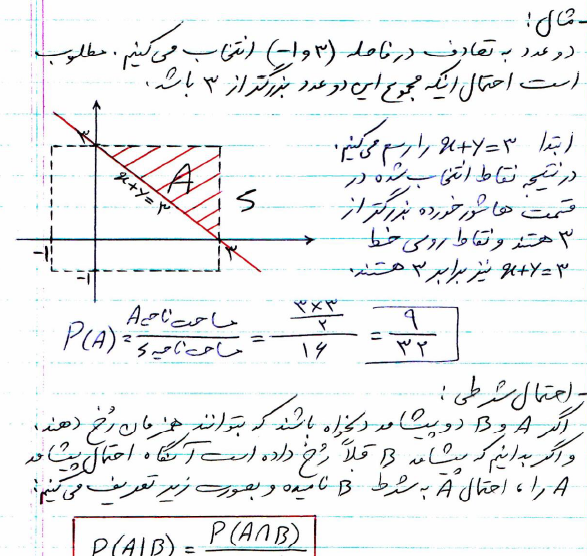 - مثال :
دو عدد به تصادف در فاصله (۳ و ۱-) انتخاب می‌کنیم. مطلوب
است احتمال اینکه مجموع این دو عدد بزرگتر از ۳ باشد.
ابتدا x+y=۳ را رسم می‌کنیم.
در نتیجه نقاط انتخاب شده در
قسمت هاشور خورده بزرگتر از
۳ هستند و نقاط روی خط
x+y=۳ نیز برابر ۳ هستند.
۳
A
x+y=۳
S
-۱
۳
-۱
P(A) = مساحت ناحیه A / مساحت ناحیه S = (۳×۳ / ۲) / ۱۶ = ۹ / ۳۲
- احتمال شرطی :
اگر A و B دو پیشامد دلخواه باشند که بتوانند همزمان رُخ دهند،
و اگر بدانیم که پیشامد B قبلاً رُخ داده است آنگاه احتمال پیشامد
A را، احتمال A به شرط B نامیده و بصورت زیر تعریف می‌کنیم:
P(A|B) = P(A∩B)